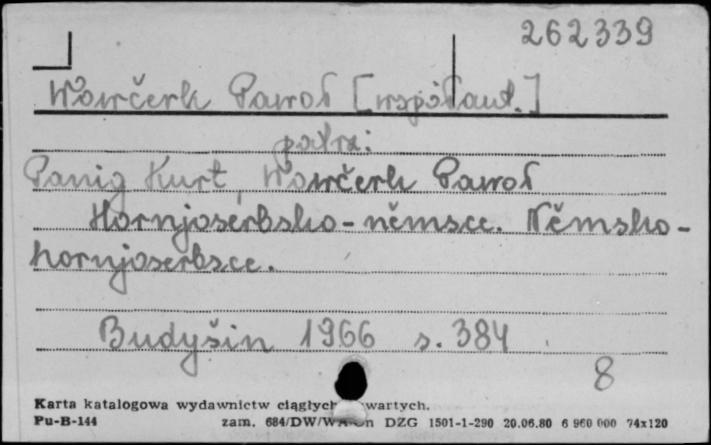 262339
Wowčerk Pawoł [współaut.]
patrz:
Panig Kurt, Wowčerk Pawoł
Hornjoserbsko-němsce. Němsko-
hornjoserbsce.
Budyšin 1966 s. 384
8
Karta katalogowa wydawnictw ciągłych wartych.
Pu-B-144 zam. 684/DW/WA-Cn DZG 1501-1-290 20.06.80 6 960 000 74x120